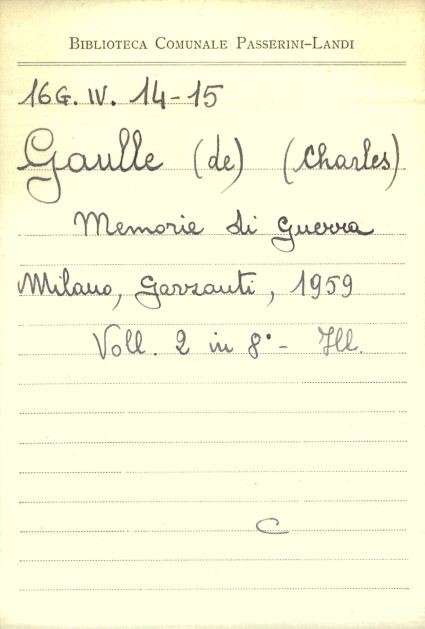 BIBLIOTECA COMUNALE PASSERINI-LANDI
16G. IV. 14-15
Gaulle (de) (Charles)
Memorie di Guerra
Milano, Garzanti, 1959
Voll. 2 in 8° - Ill.
C